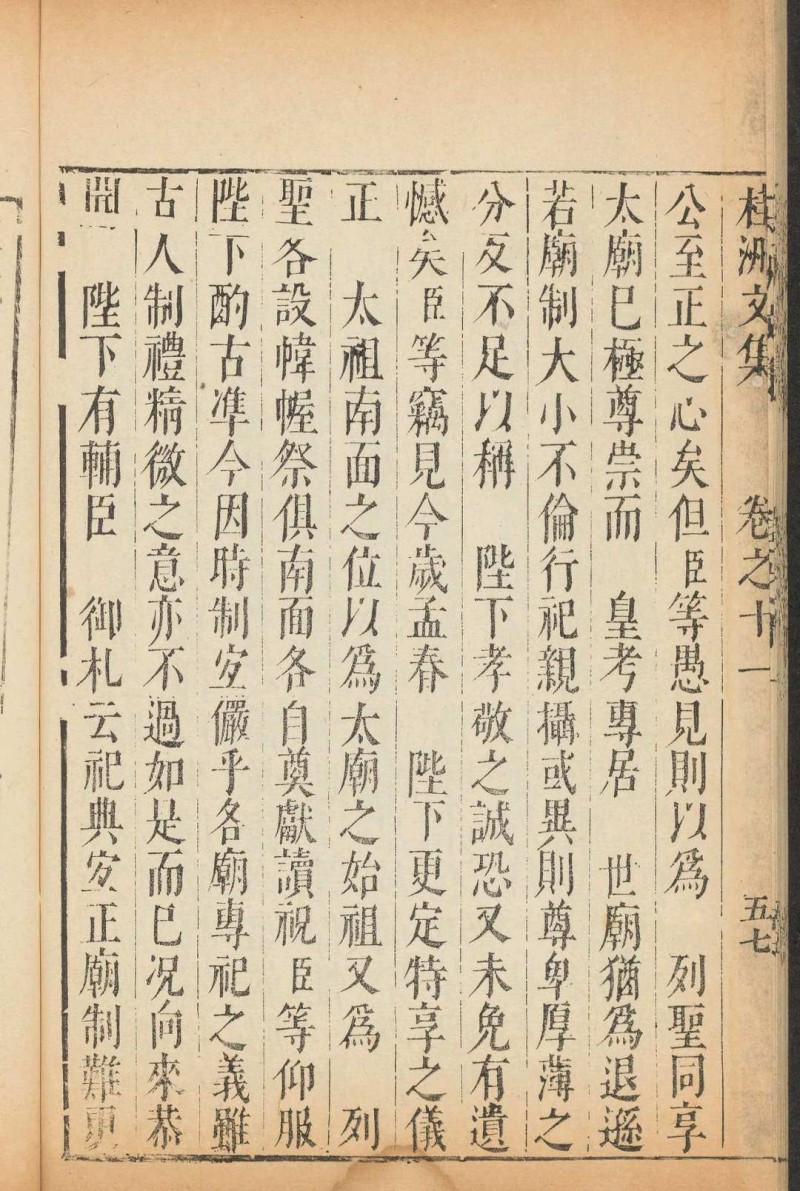 桂洲文集 卷之十一 五七
公至正之心矣但臣等愚見則以爲 列聖同享
太廟巳極尊崇而 皇考專居 世廟猶爲退遜
若廟制大小不倫行祀親攝或異則尊卑厚薄之
分反不足以稱 陛下孝敬之誠恐又未免有遺
憾矣臣等竊見今歲孟春 陛下更定特享之儀
正 太祖南面之位以爲太廟之始祖又爲 列
聖各設幃幄祭俱南面各自奠獻讀祝臣等仰服
陛下酌古凖今因時制宐儼乎各廟專祀之義雖
古人制禮精微之意亦不過如是而巳况向來恭
聞 陛下有輔臣 御札云祀典宐正廟制難更